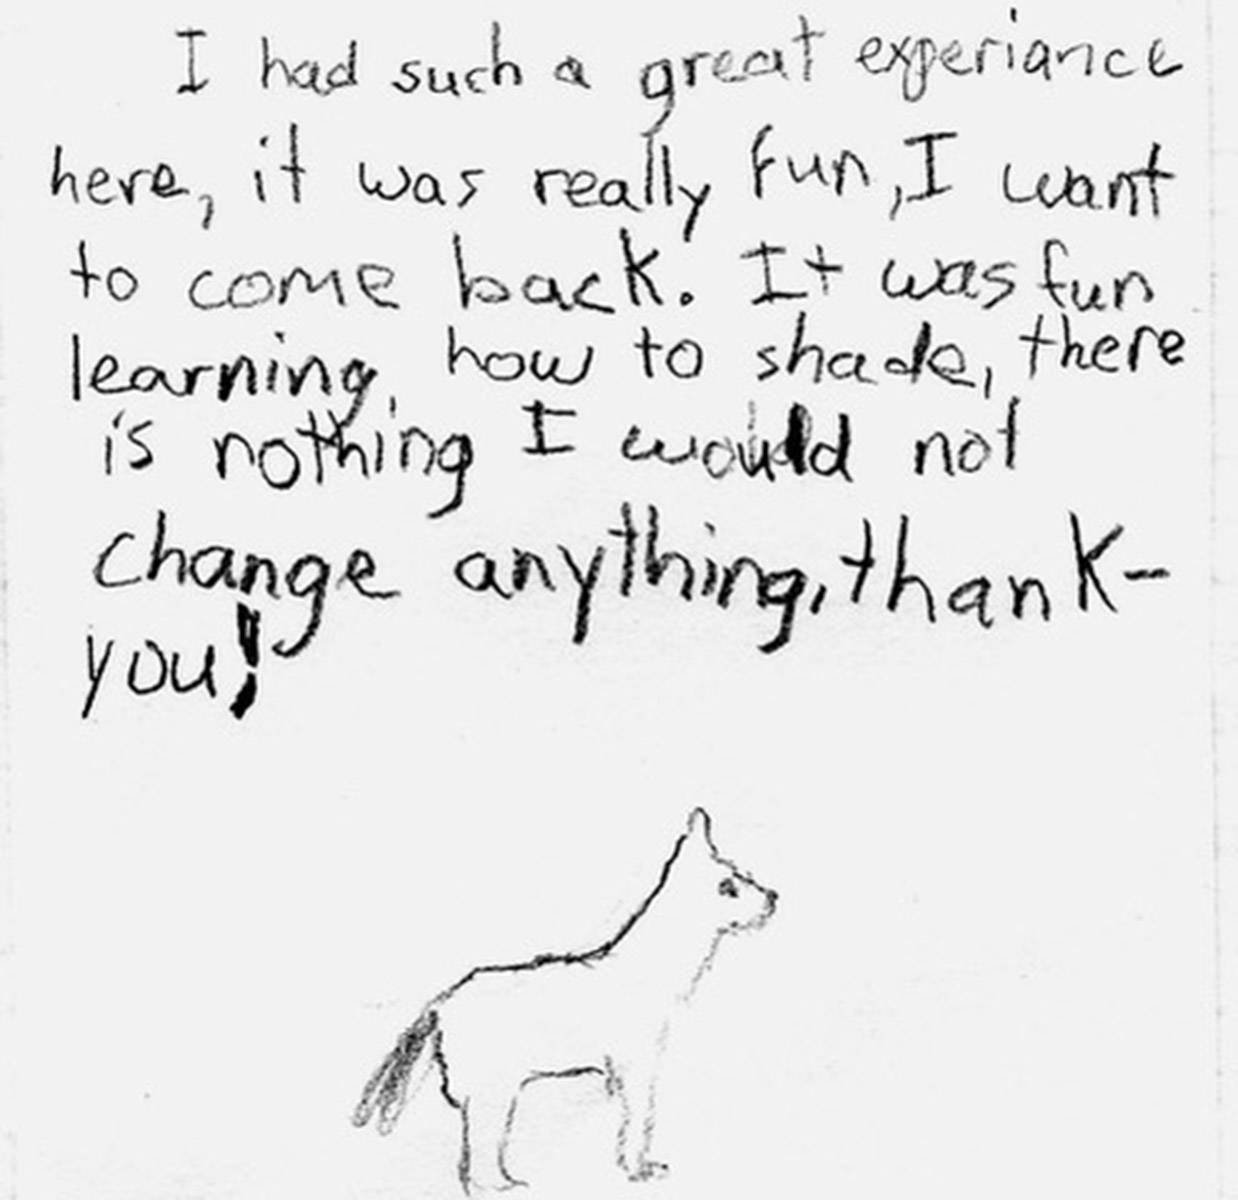 I had such a great experiance
here, it was really fun, I want
to come back. It was fun
learning, how to shade, there
is nothing I would not
change anything, thank-
you!